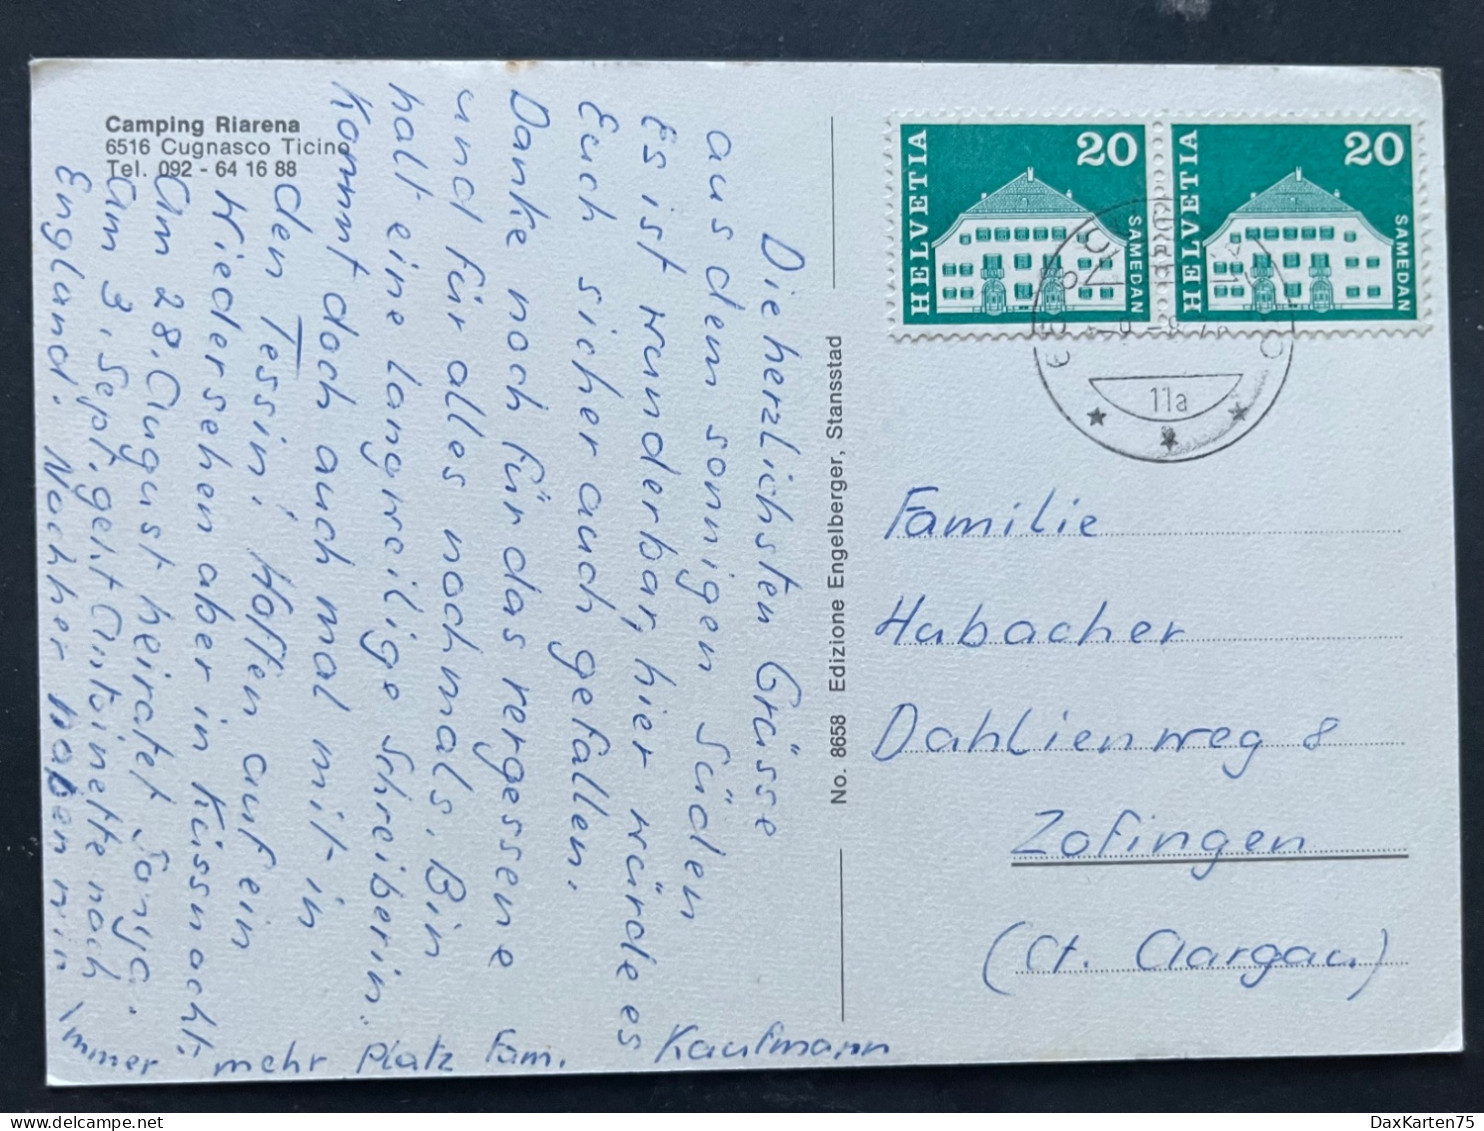 Camping Riarena
6516 Cugnasco Ticino
Tel. 092 - 64 16 88
Die herzlichsten Grüsse
aus dem sonnigen Süden
Es ist wunderbar, hier würde es
Euch sicher auch gefallen.
Danke noch für das vergessene
und für alles nochmals. Bin
halt eine langweilige Schreiberin.
Kommt doch auch mal mit in
den Tessin! Hoffen auf ein
Wiedersehen aber in Küssnacht.
Am 28. August heiratet Sonya.
Am 3. Sept. geht Antoinette nach
England. Nachher haben wir
immer mehr Platz Fam. Kaufmann
No. 8658 Edizione Engelberger, Stansstad
HELVETIA
20
SAMEDAN
HELVETIA
20
SAMEDAN
11a
Familie
Habacher
Dahlienweg 8
Zofingen
(Ct. Aargau)
DaxKarten75